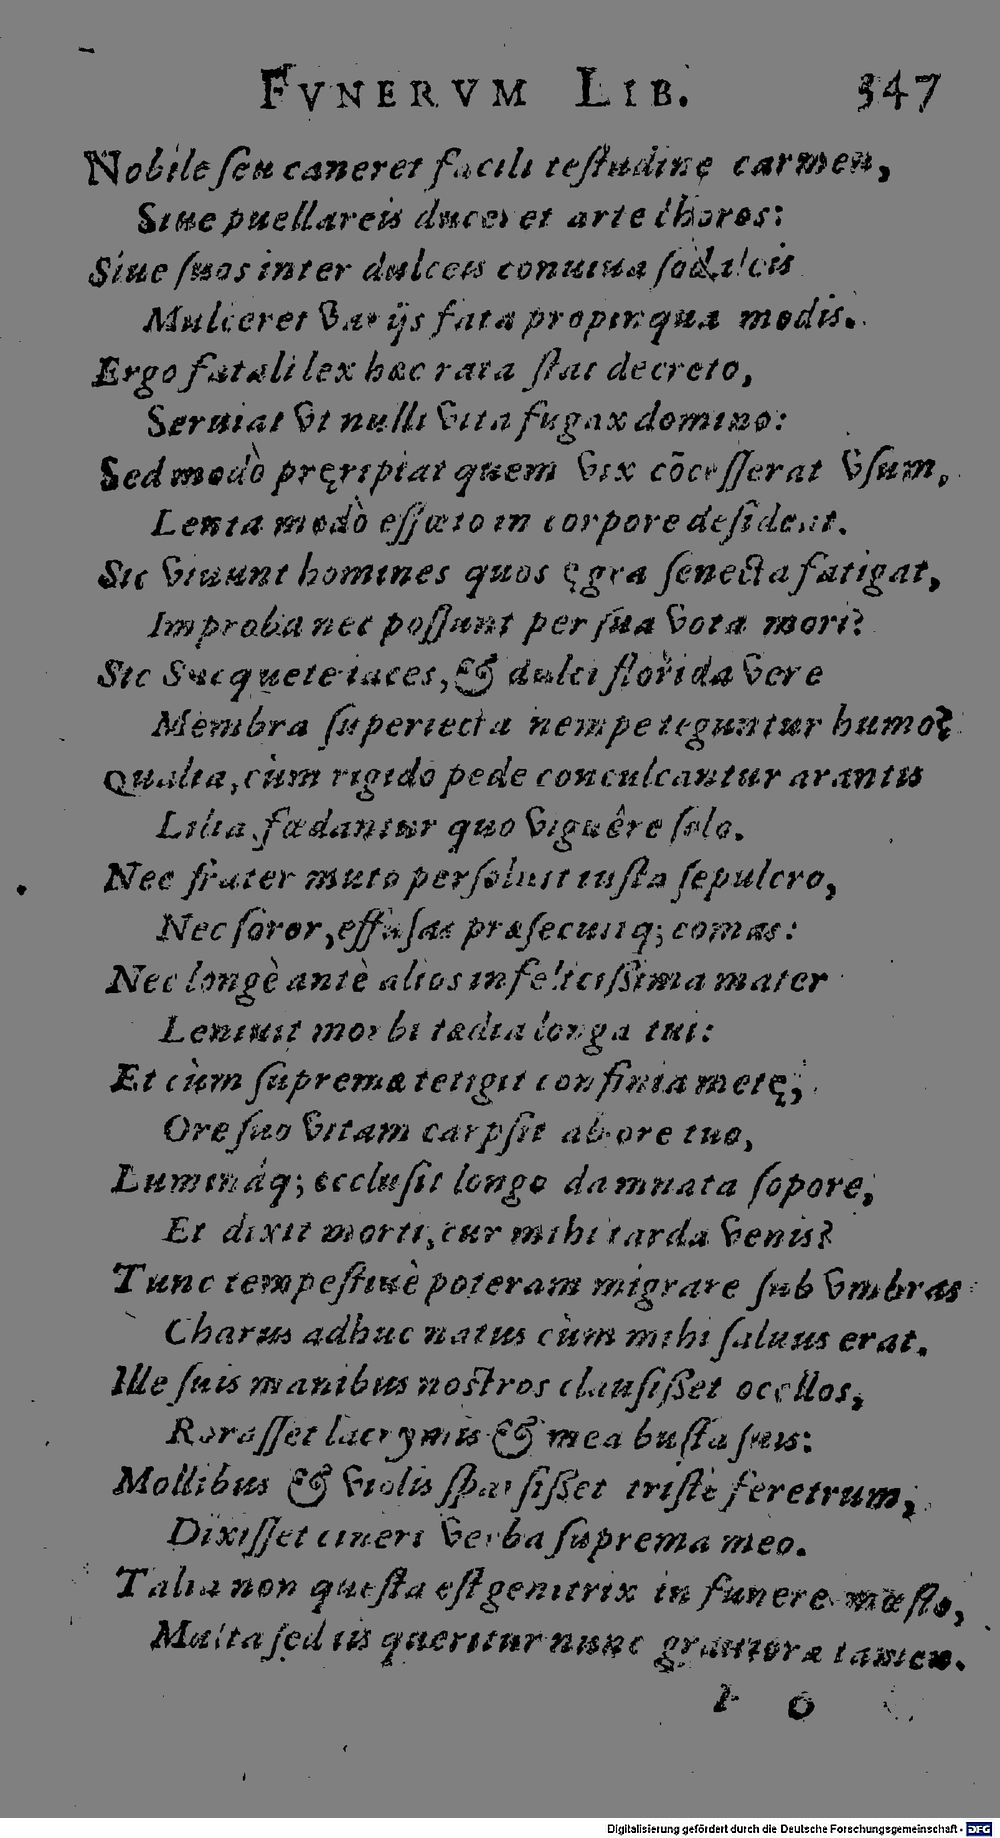 FVNERVM LIB. 347
Nobile ſeu caneret facili teſtudine carmen,
Siue puellareis duceret arte choros:
Siue ſuos inter dulceis conuiuia ſodaleis
Mulceret varijs fata propinqua modis.
Ergo fatali lex hæc rata ſtat decreto,
Seruiat vt nulli vita fugax domino:
Sed modò pręripiat quem vix cõceſſerat vſum,
Lenta modò effœto in corpore deſideat.
Sic viuunt homines quos ęgra ſenecta fatigat,
Improba nec poſſunt per ſua vota mori?
Sic Sucquete iaces, & dulci florida vere
Membra ſuperiecta nempe teguntur humo?
Qualia, cùm rigido pede conculcantur arantis
Lilia, fœdantur quo viguêre ſolo.
Nec frater muto perſoluit iuſta ſepulcro,
Nec ſoror, effuſas præſecuitq; comas:
Nec longè antè alios infeliciſſima mater
Leniuit morbi tædia longa tui:
Et cùm ſupremæ tetigit confinia metę,
Ore ſuo vitam carpſit ab ore tuo,
Lumináq; occluſit longo damnata ſopore,
Et dixit morti, cur mihi tarda venis?
Tunc tempeſtiuè poteram migrare ſub vmbras
Charus adhuc natus cùm mihi ſaluus erat.
Ille ſuis manibus noſtros clauſiſſet ocellos,
Roraſſet lacrymis & mea buſta ſuis:
Mollibus & violis ſparſiſſet triſtè feretrum,
Dixiſſet cineri verba ſuprema meo.
Talia non queſta eſt genitrix in funere mœſto,
Multa ſed iis queritur nunc grauiora tamen.
o
Digitalisierung gefördert durch die Deutsche Forschungsgemeinschaft - DFG